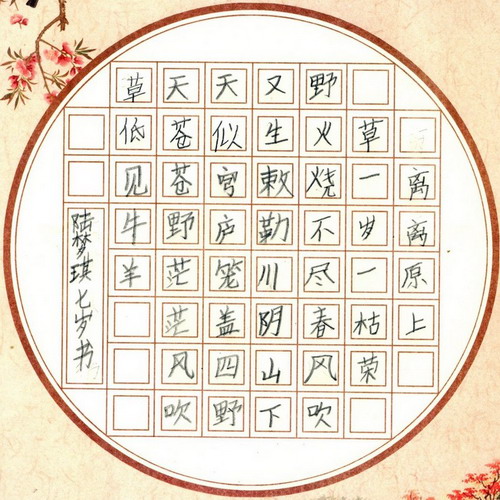 离离原上
草一岁一枯荣
野火烧不尽春风吹
又生敕勒川阴山下
天似穹庐笼盖四野
天苍苍野茫茫风吹
草低见牛羊
陆梦琪七岁书